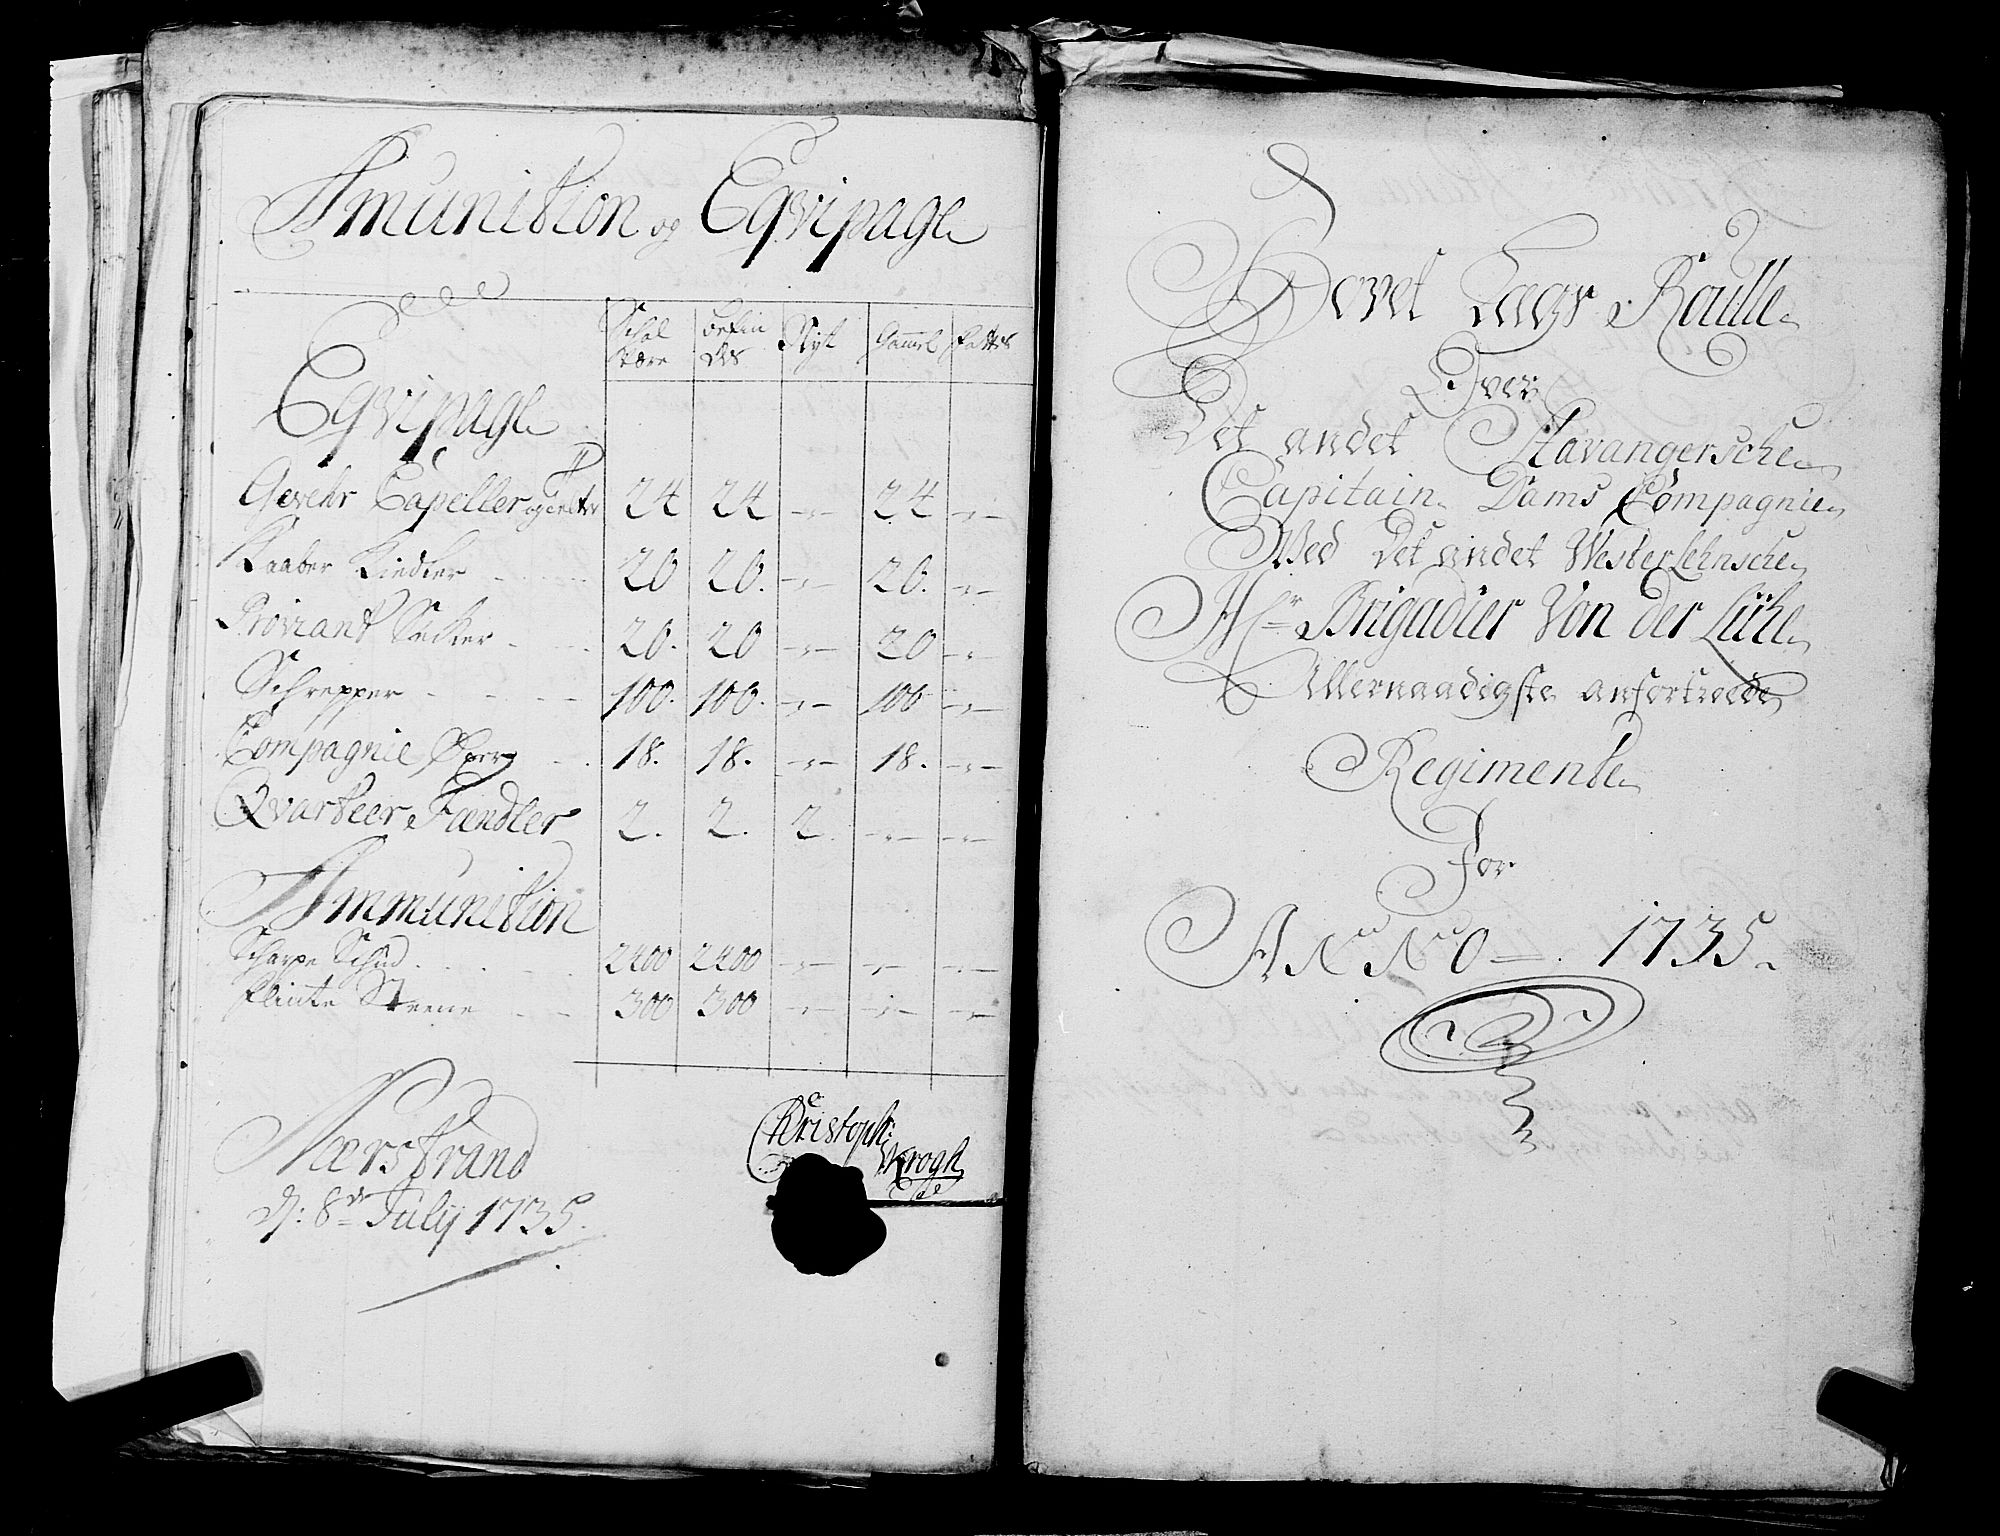 Amunition og Eqvipage
Schal være | befindes | Nyt | Gammel | Fattes
Eqvipage
Gevehr Capeller 24 24 -"- 24 -"-
Kaaber Kiedler 20 20. -"- 20. -"-
Proviant Secker 20. 20 -"- 20 -"-
Schrepper 100. 100. -"- 100 -"-
Compagnie Øxer 18. 18. -"- 18. -"-
Qvarteer Fændler 2. 2. 2 -"- -"-
Ammunition
Scharpe Schud 2400 2400 -"- -"- -"-
Flinte Steene 300 300 -"- -"- -"-
Nærstrand
d: 8de July 1735.
Christoph: Krogh
Hovet Lægs Roulle
Over
Det andet Stavangersche
Capitain Dams Compagnie
Ved Det andet Westerlehnsche
Hr Brigadier Von der Lühe
Allernaadigste anfortroede
Regimente
For
ANNO 1735